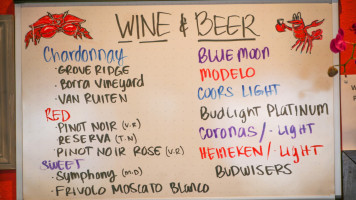 WINE & BEER
Chardonnay
· GROVE RIDGE
· Borra Vineyard
· VAN RUITEN
RED
· PINOT NOIR (V.R)
RESERVA (T.N)
· PINOT NOIR ROSE (V.R)
SWEET
· Symphony (M.D)
· FRIVOLO MOSCATO BLANCO
BLUE MOON
MODELO
COORS LIGHT
BUDLIGHT PLATINUM
CORONAS/- LIGHT
HEINEKEN/- Light
BUDWISERS